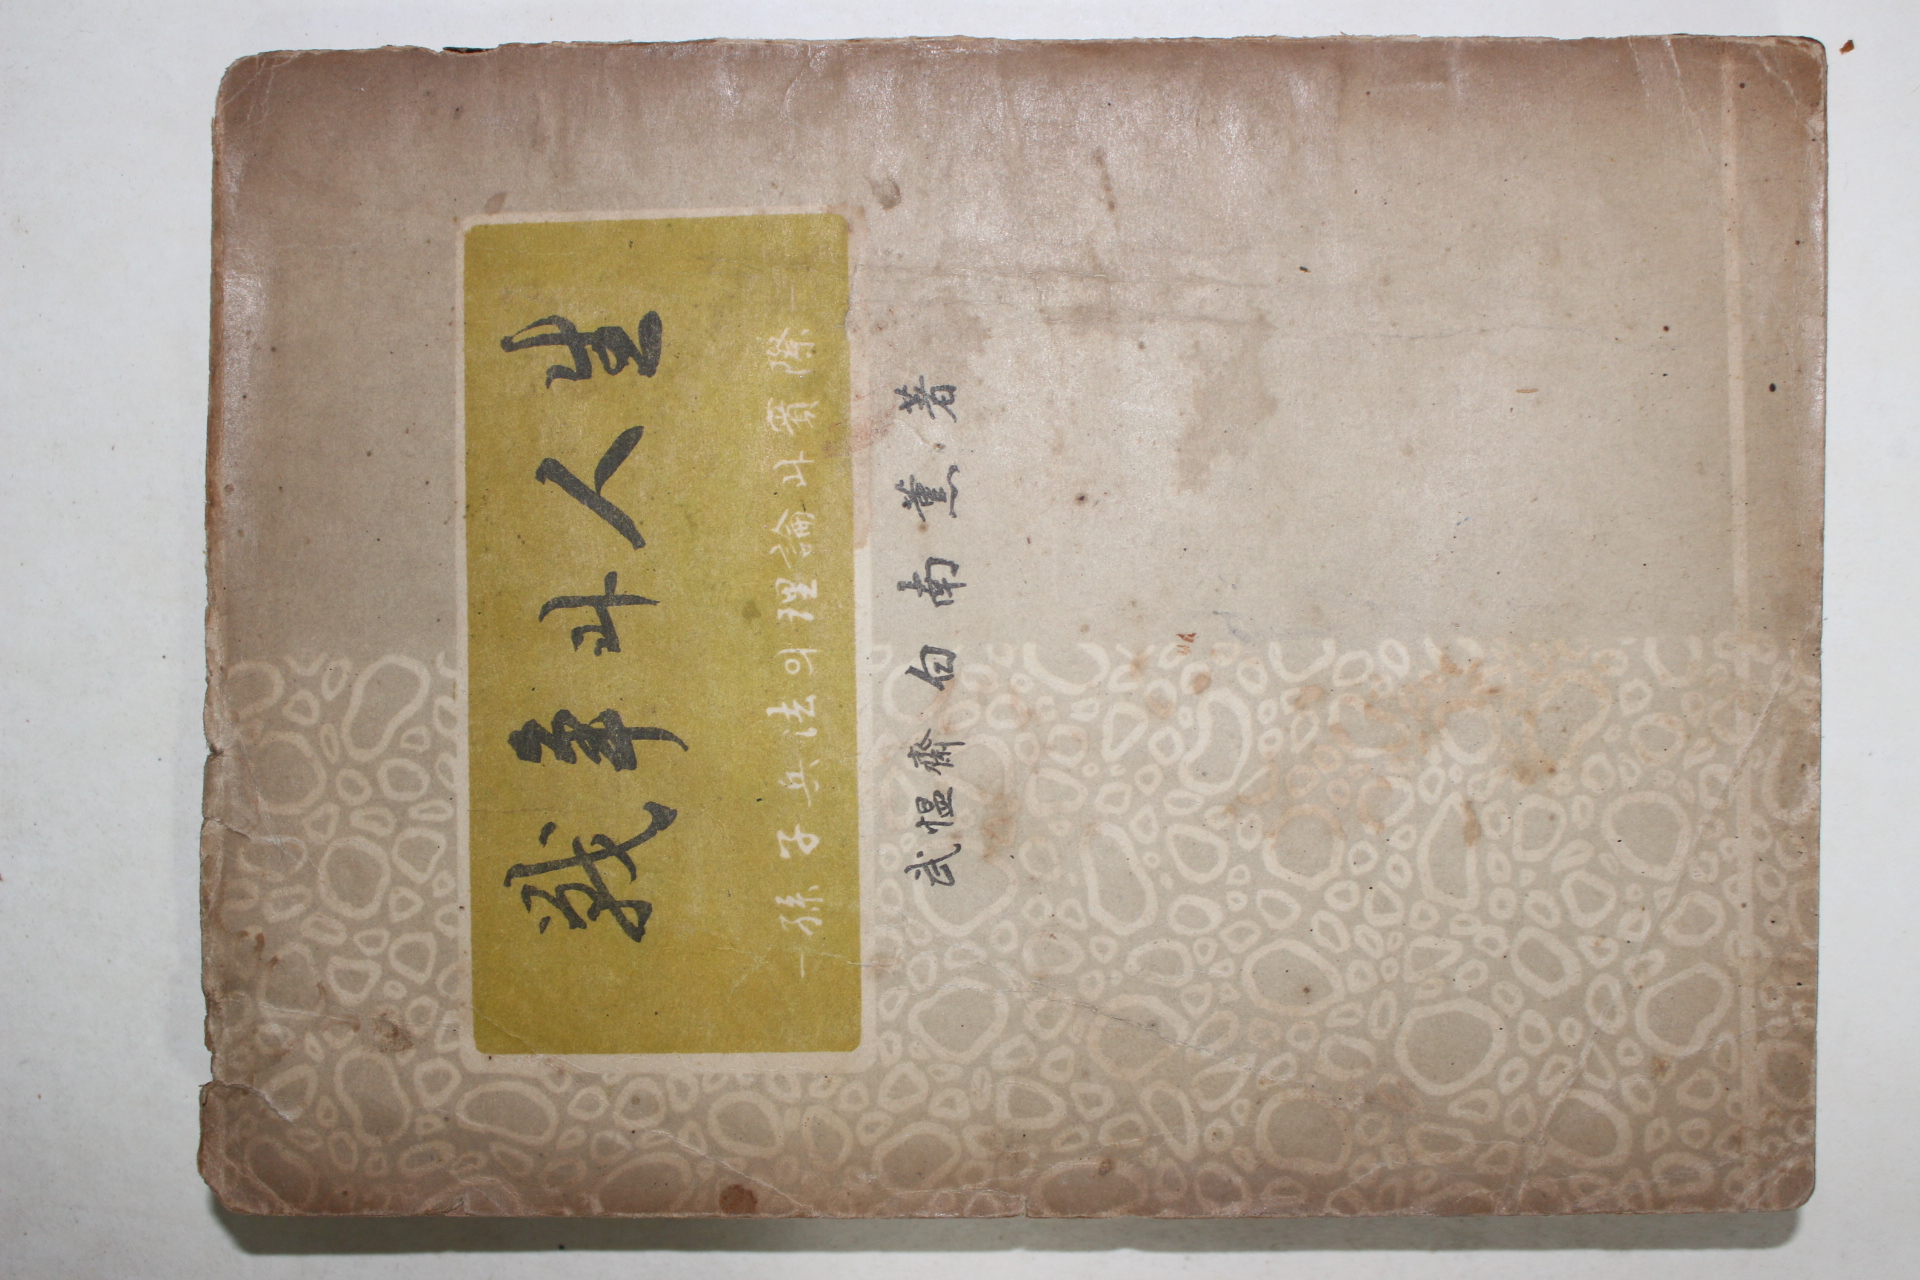 戰爭과人生
—孫子兵法의理論과實際—
武愠齋 白南薰 著